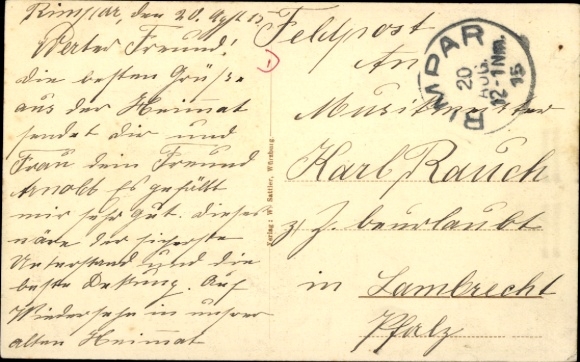 Rimpar, den 20. Aug. 15
Werter Freund!
die besten Grüsse
aus der Heimat
sendet dir und
Frau dein Freund
Arnold Es gefällt
mir sehr gut. dieses
wäre der sicherste
Unterstand und die
beste Deckung. Auf
Wiedersehn in unsrer
alten Heimat
Verlag: W. Sattler, Würzburg
Feldpost
RIMPAR
20
AUG.
12-1Nm.
15
An
Musikmeister
Karl Rauch
z. Z. beurlaubt
in Lambrecht
Pfalz